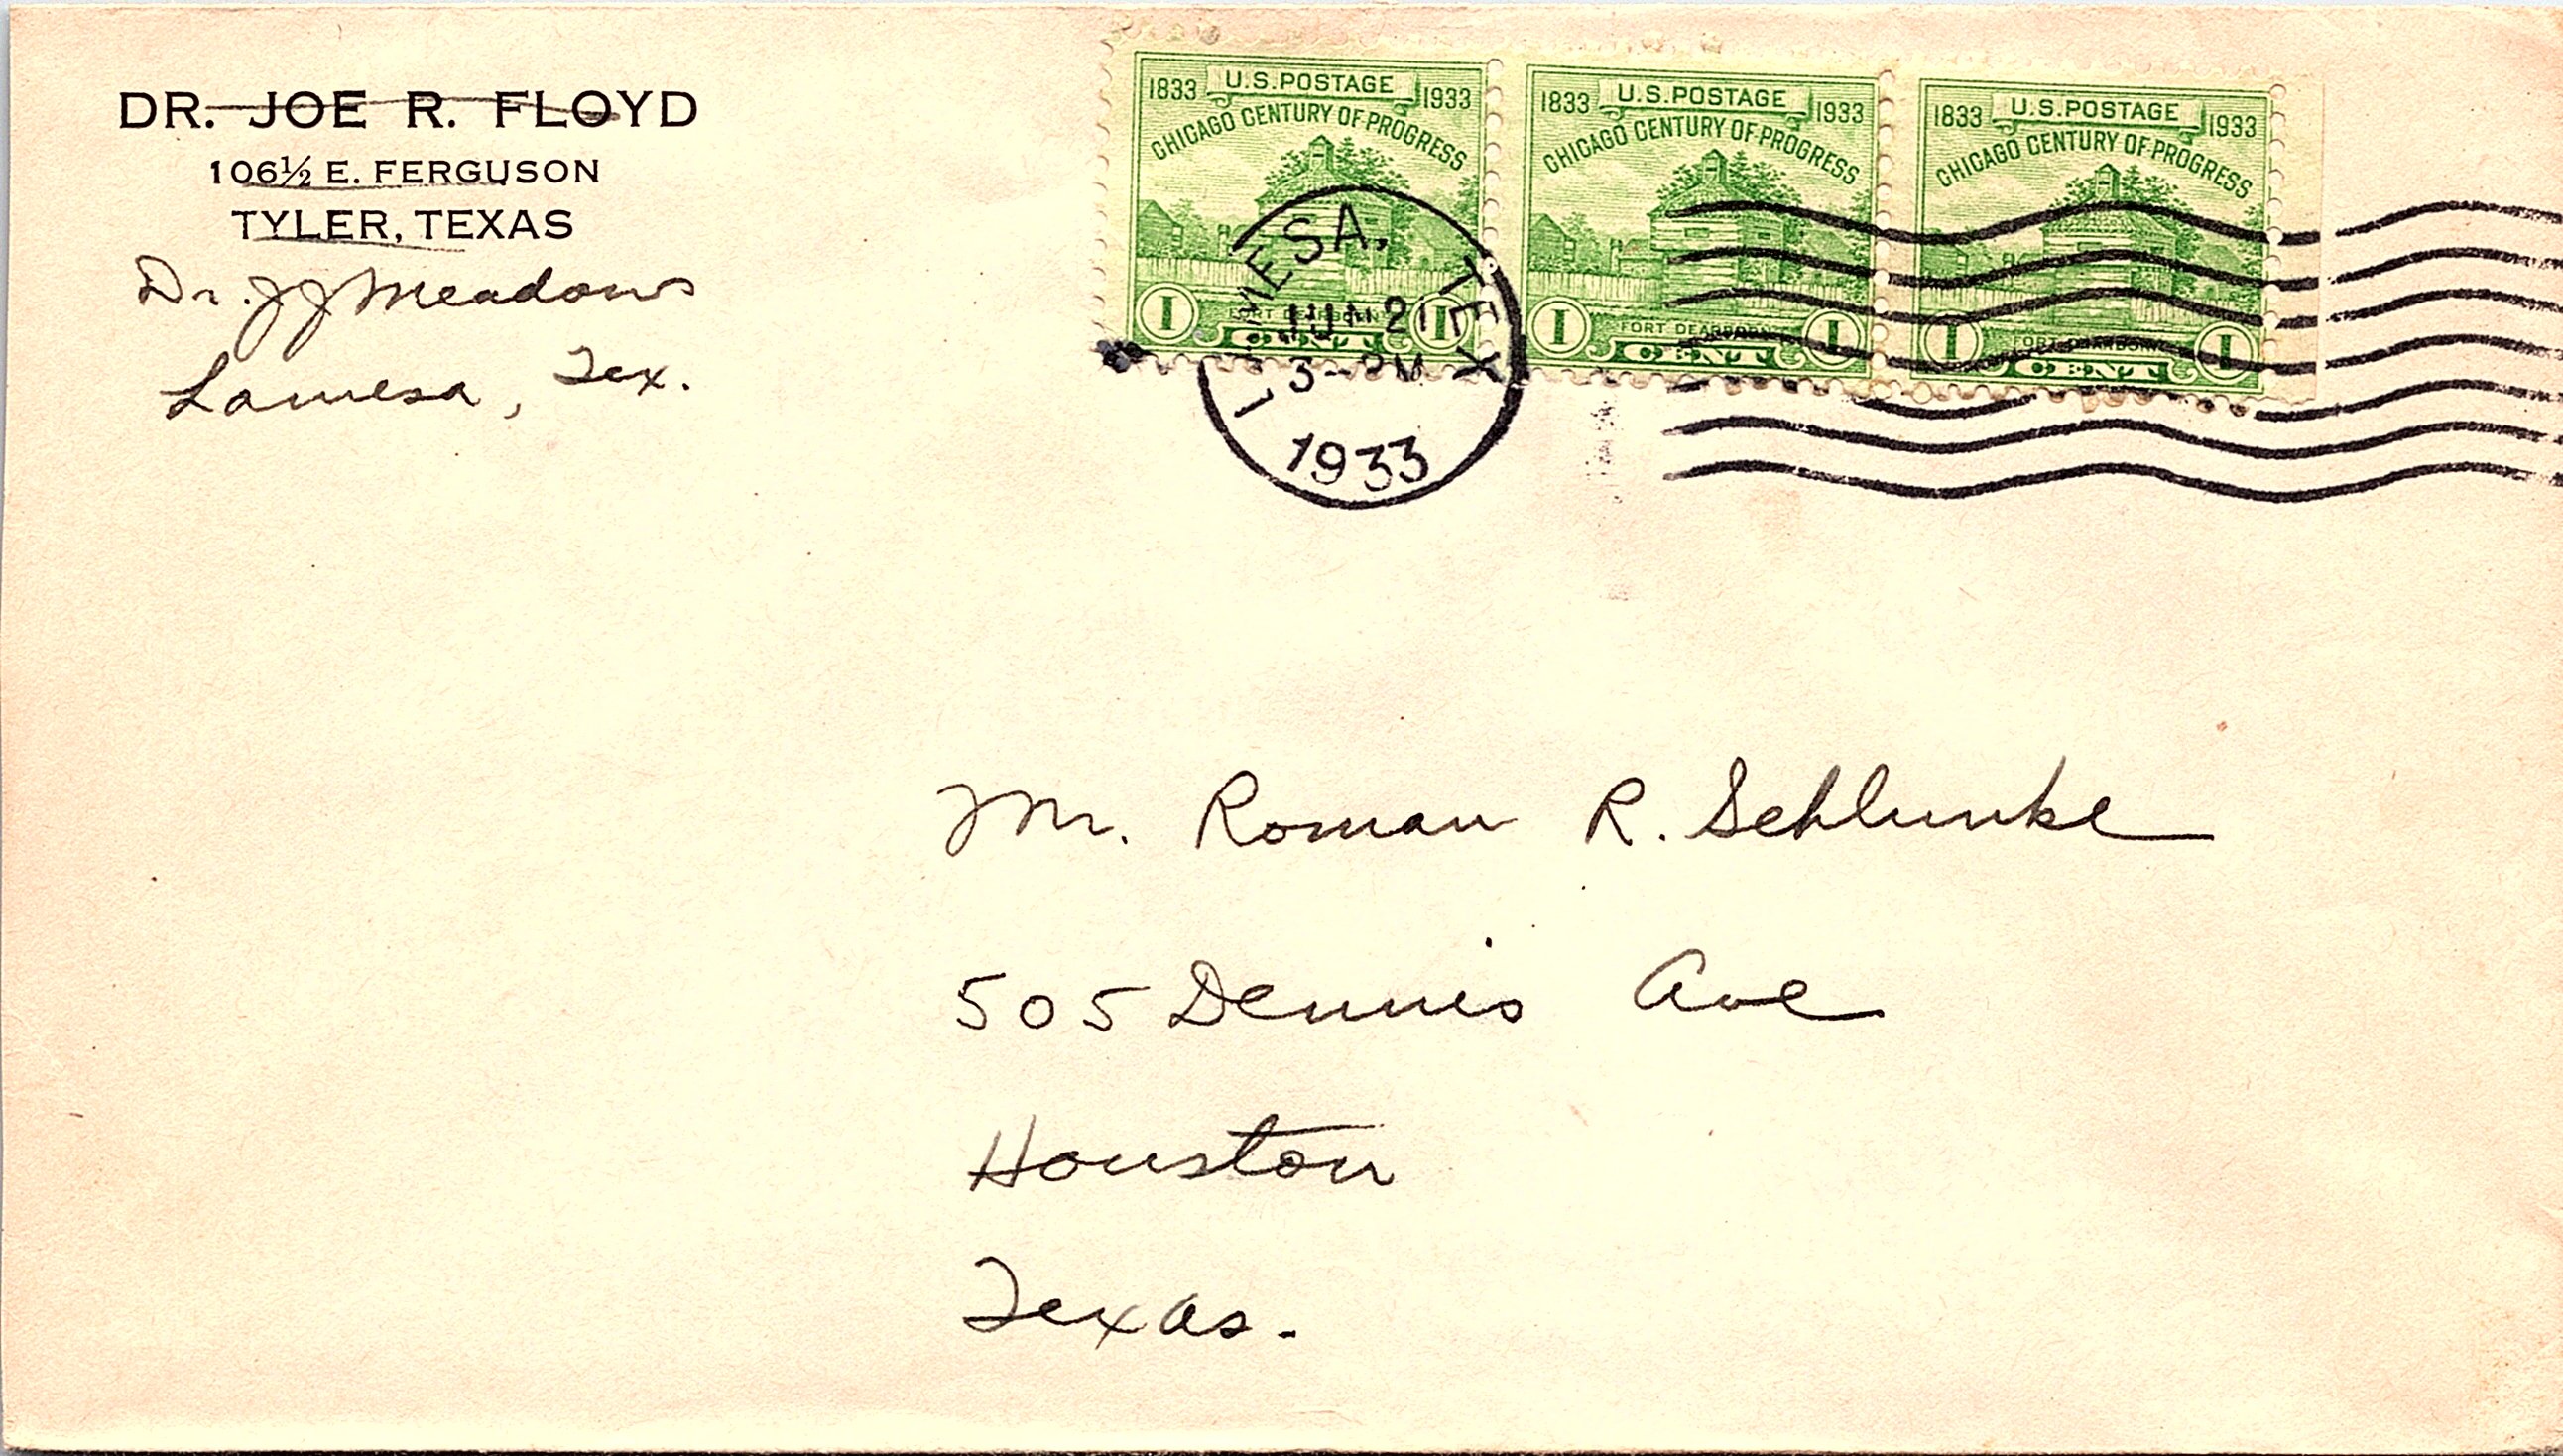 DR. JOE R. FLOYD
106½ E. FERGUSON
TYLER, TEXAS
Dr. JJ Meadows
Lamesa, Tex.
1833 U.S. POSTAGE 1933
CHICAGO CENTURY OF PROGRESS
FORT DEARBORN
1 CENT 1
1833 U.S. POSTAGE 1933
CHICAGO CENTURY OF PROGRESS
FORT DEARBORN
1 CENT 1
1833 U.S. POSTAGE 1933
CHICAGO CENTURY OF PROGRESS
FORT DEARBORN
1 CENT 1
LAMESA, TEX
JUN 21
3-PM
1933
Mr. Roman R. Schlunke
505 Dennis Ave
Houston
Texas.